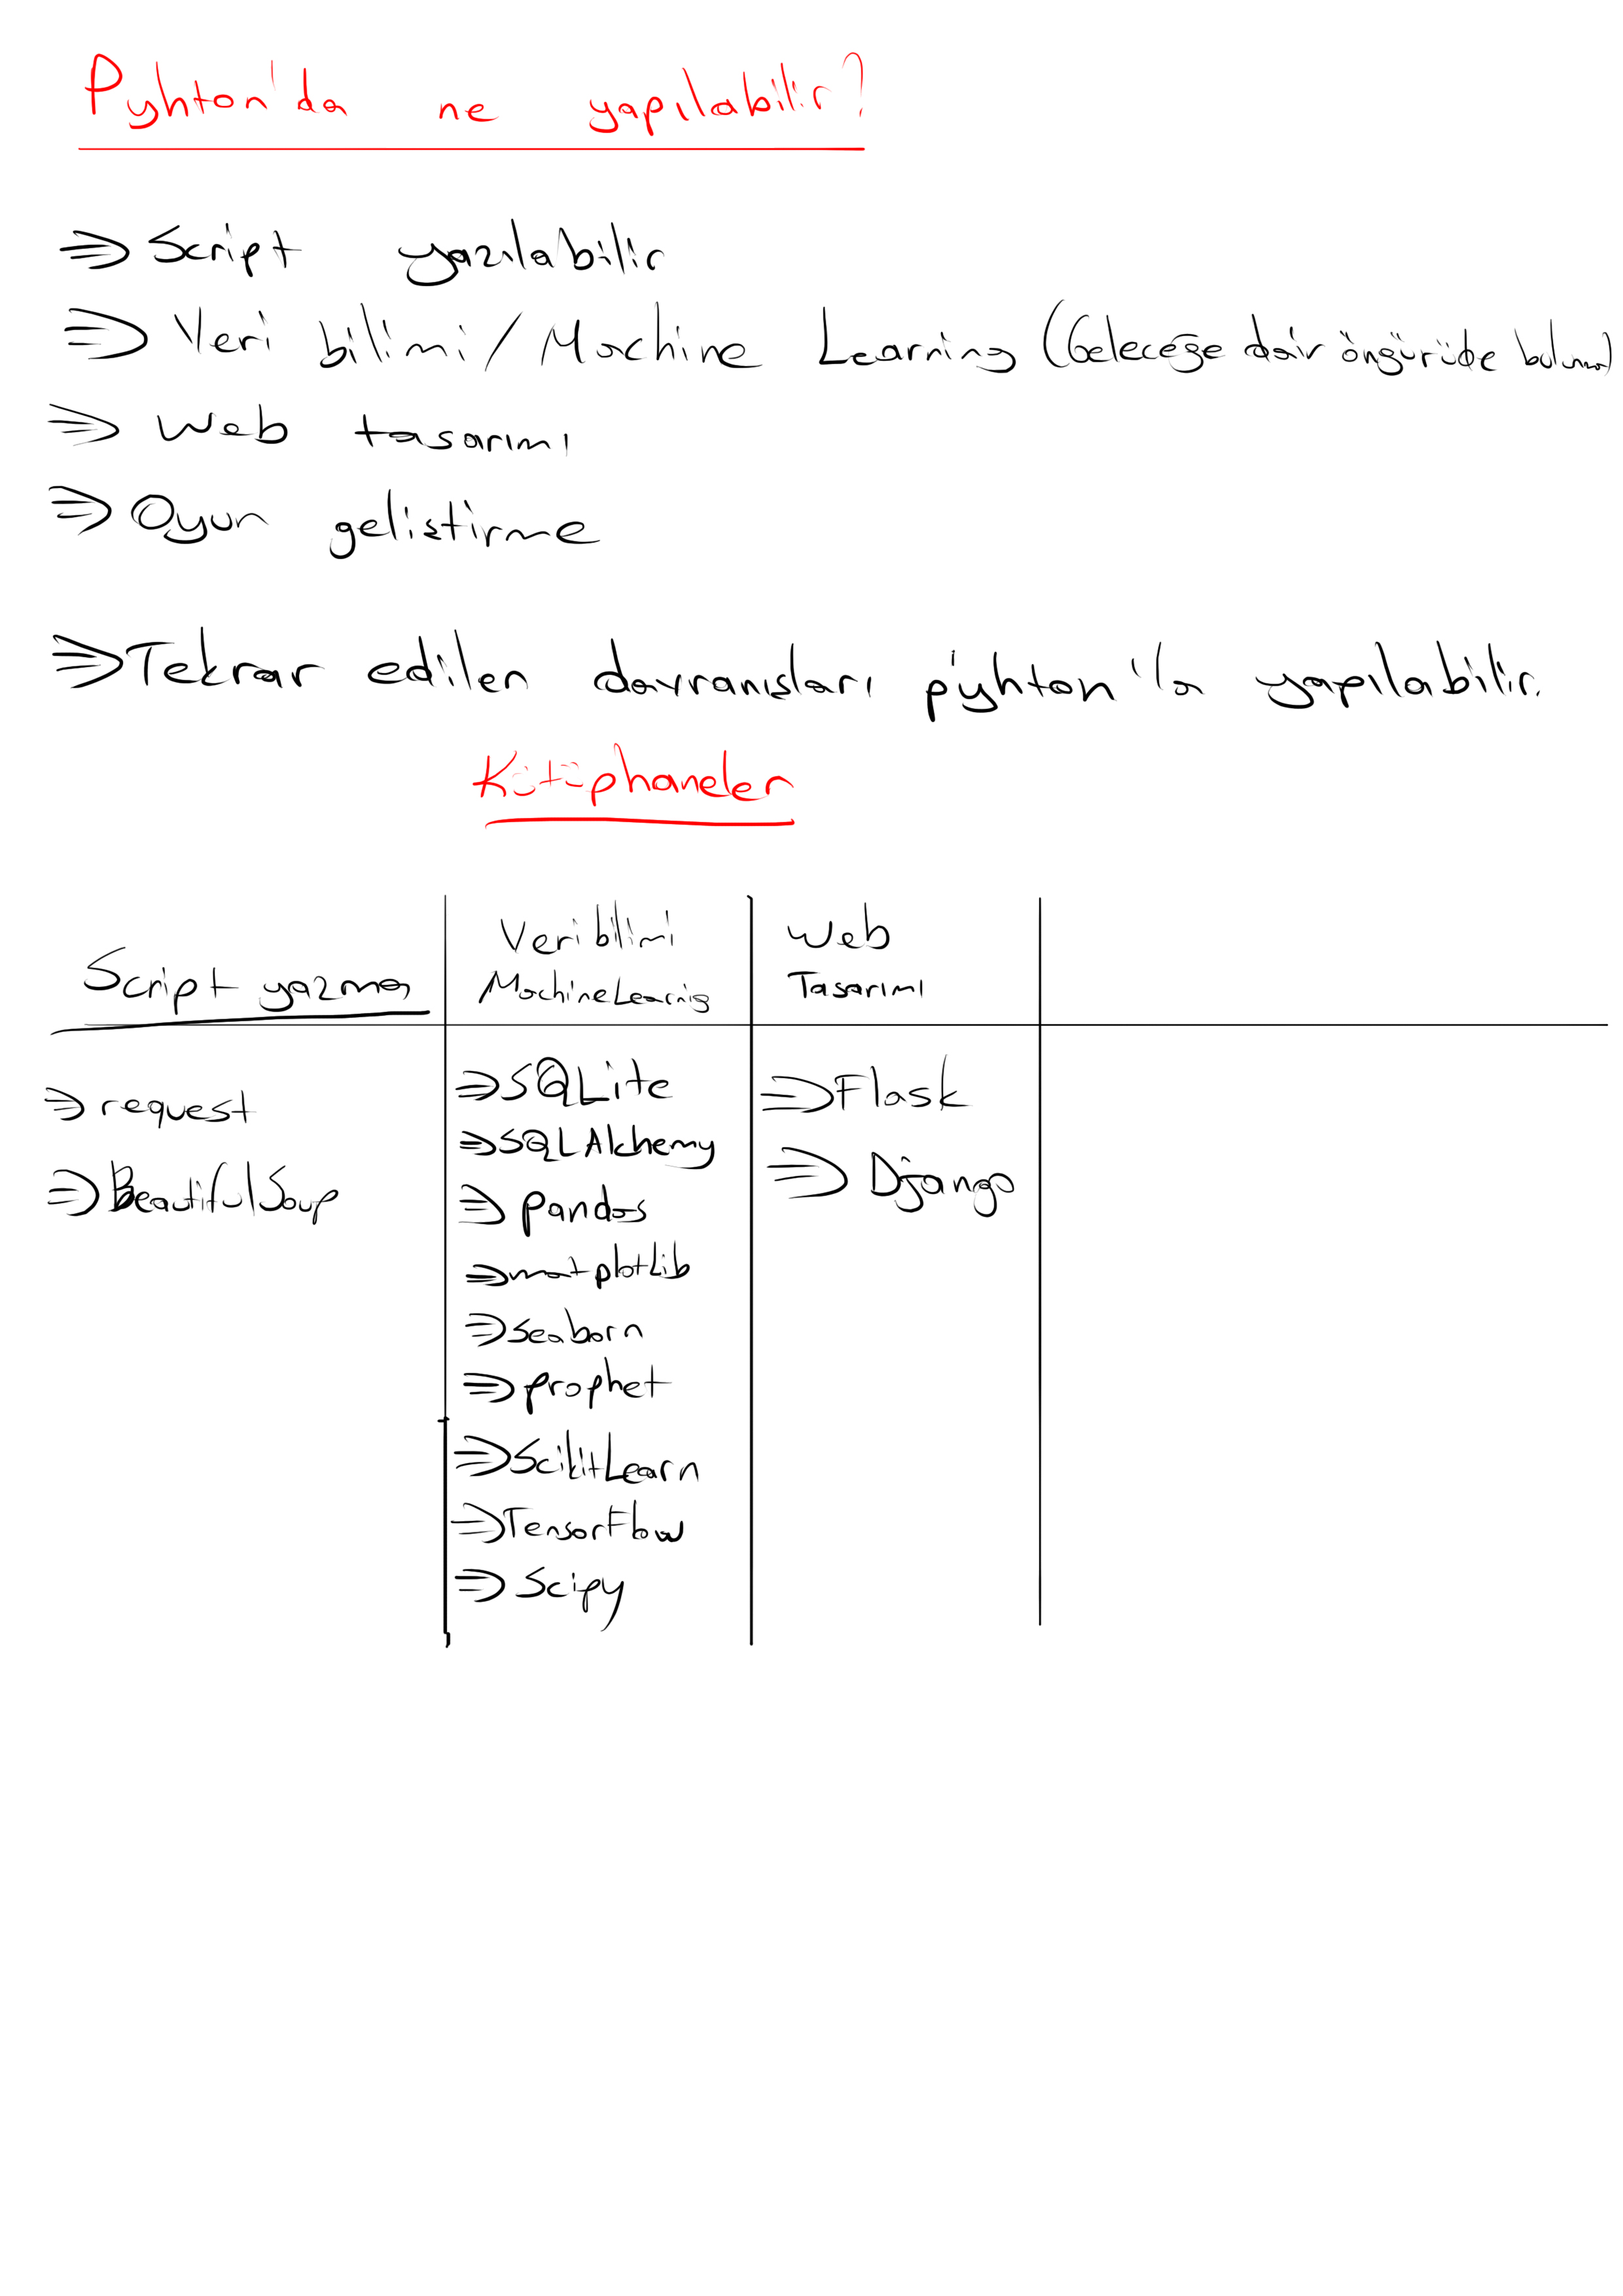 Pyhton'da ne yapılabilir?
⇒ Script yazılabilir
⇒ Veri bilimi / Machine Learning (Geleceğe dair öngürüde bulunma)
⇒ Web tasarımı
⇒ Oyun gelistirme
⇒ Tekrar edilen davranısları pyhton'la yapılabilir.
Kütüphaneler
Script yazma
Veri bilimi
Machine Learnig
Web
Tasarımı
⇒ request
⇒ BeautifulSoup
⇒ SQLite
⇒ SQLAlchemy
⇒ Pandas
⇒ matplotLib
⇒ Seaborn
⇒ prophet
⇒ ScikitLearn
⇒ TensorFlow
⇒ Scipy
⇒ Flask
⇒ Django